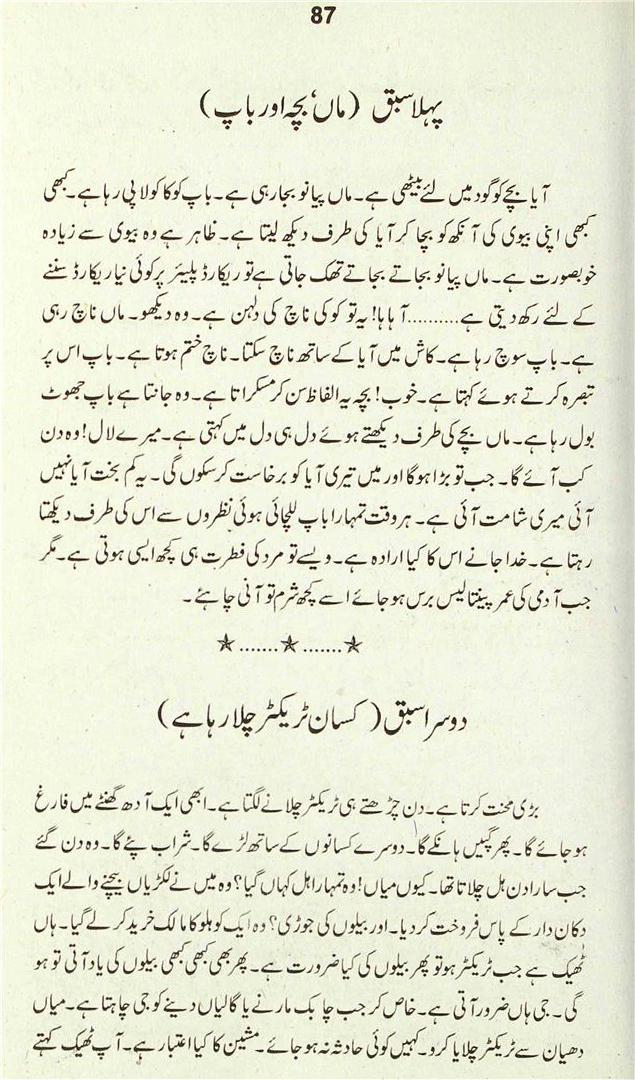 87
پہلا سبق (ماں‘ بچہ اور باپ)
آیا بچے کو گود میں لئے بیٹھی ہے۔ ماں پیانو بجا رہی ہے۔ باپ کوکا کولا پی رہا ہے۔ کبھی
کبھی اپنی بیوی کی آنکھ کو بچا کر آیا کی طرف دیکھ لیتا ہے۔ ظاہر ہے وہ بیوی سے زیادہ
خوبصورت ہے۔ ماں پیانو بجاتے بجاتے تھک جاتی ہے تو ریکارڈ پلیئر پر کوئی نیا ریکارڈ سننے
کے لئے رکھ دیتی ہے..........آہاہا! یہ تو کوکی ناچ کی دلہن ہے۔ وہ دیکھو۔ ماں ناچ رہی
ہے۔ باپ سوچ رہا ہے۔ کاش میں آیا کے ساتھ ناچ سکتا۔ ناچ ختم ہوتا ہے۔ باپ اس پر
تبصرہ کرتے ہوئے کہتا ہے۔ خوب! بچہ یہ الفاظ سن کر مسکراتا ہے۔ وہ جانتا ہے باپ جھوٹ
بول رہا ہے۔ ماں بچے کی طرف دیکھتے ہوئے دل ہی دل میں کہتی ہے۔ میرے لال! وہ دن
کب آئے گا۔ جب تو بڑا ہوگا اور میں تیری آیا کو برخاست کر سکوں گی۔ یہ کم بخت آیا نہیں
آئی میری شامت آئی ہے۔ ہر وقت تمہارا باپ للچائی ہوئی نظروں سے اس کی طرف دیکھتا
رہتا ہے۔ خدا جانے اس کا کیا ارادہ ہے۔ ویسے تو مرد کی فطرت ہی کچھ ایسی ہوتی ہے۔ مگر
جب آدمی کی عمر پینتالیس برس ہو جائے اسے کچھ شرم تو آنی چاہئے۔
★.......★.......★
دوسرا سبق (کسان ٹریکٹر چلا رہا ہے)
بڑی محنت کرتا ہے۔ دن چڑھتے ہی ٹریکٹر چلانے لگتا ہے۔ ابھی ایک آدھ گھنٹے میں فارغ
ہو جائے گا۔ پھر گپیں ہانکے گا۔ دوسرے کسانوں کے ساتھ لڑے گا۔ شراب پئے گا۔ وہ دن گئے
جب سارا دن ہل چلاتا تھا۔ کیوں میاں! وہ تمہارا ہل کہاں گیا؟ وہ میں نے لکڑیاں بیچنے والے ایک
دکان دار کے پاس فروخت کر دیا۔ اور بیلوں کی جوڑی؟ وہ ایک کوہلو کا مالک خرید کر لے گیا۔ ہاں
ٹھیک ہے جب ٹریکٹر ہو تو پھر بیلوں کی کیا ضرورت ہے۔ پھر بھی کبھی کبھی بیلوں کی یاد آتی تو ہو
گی۔ جی ہاں ضرور آتی ہے۔ خاص کر جب چابک مارنے یا گالیاں دینے کو جی چاہتا ہے۔ میاں
دھیان سے ٹریکٹر چلایا کرو۔ کہیں کوئی حادثہ نہ ہو جائے۔ مشین کا کیا اعتبار ہے۔ آپ ٹھیک کہتے